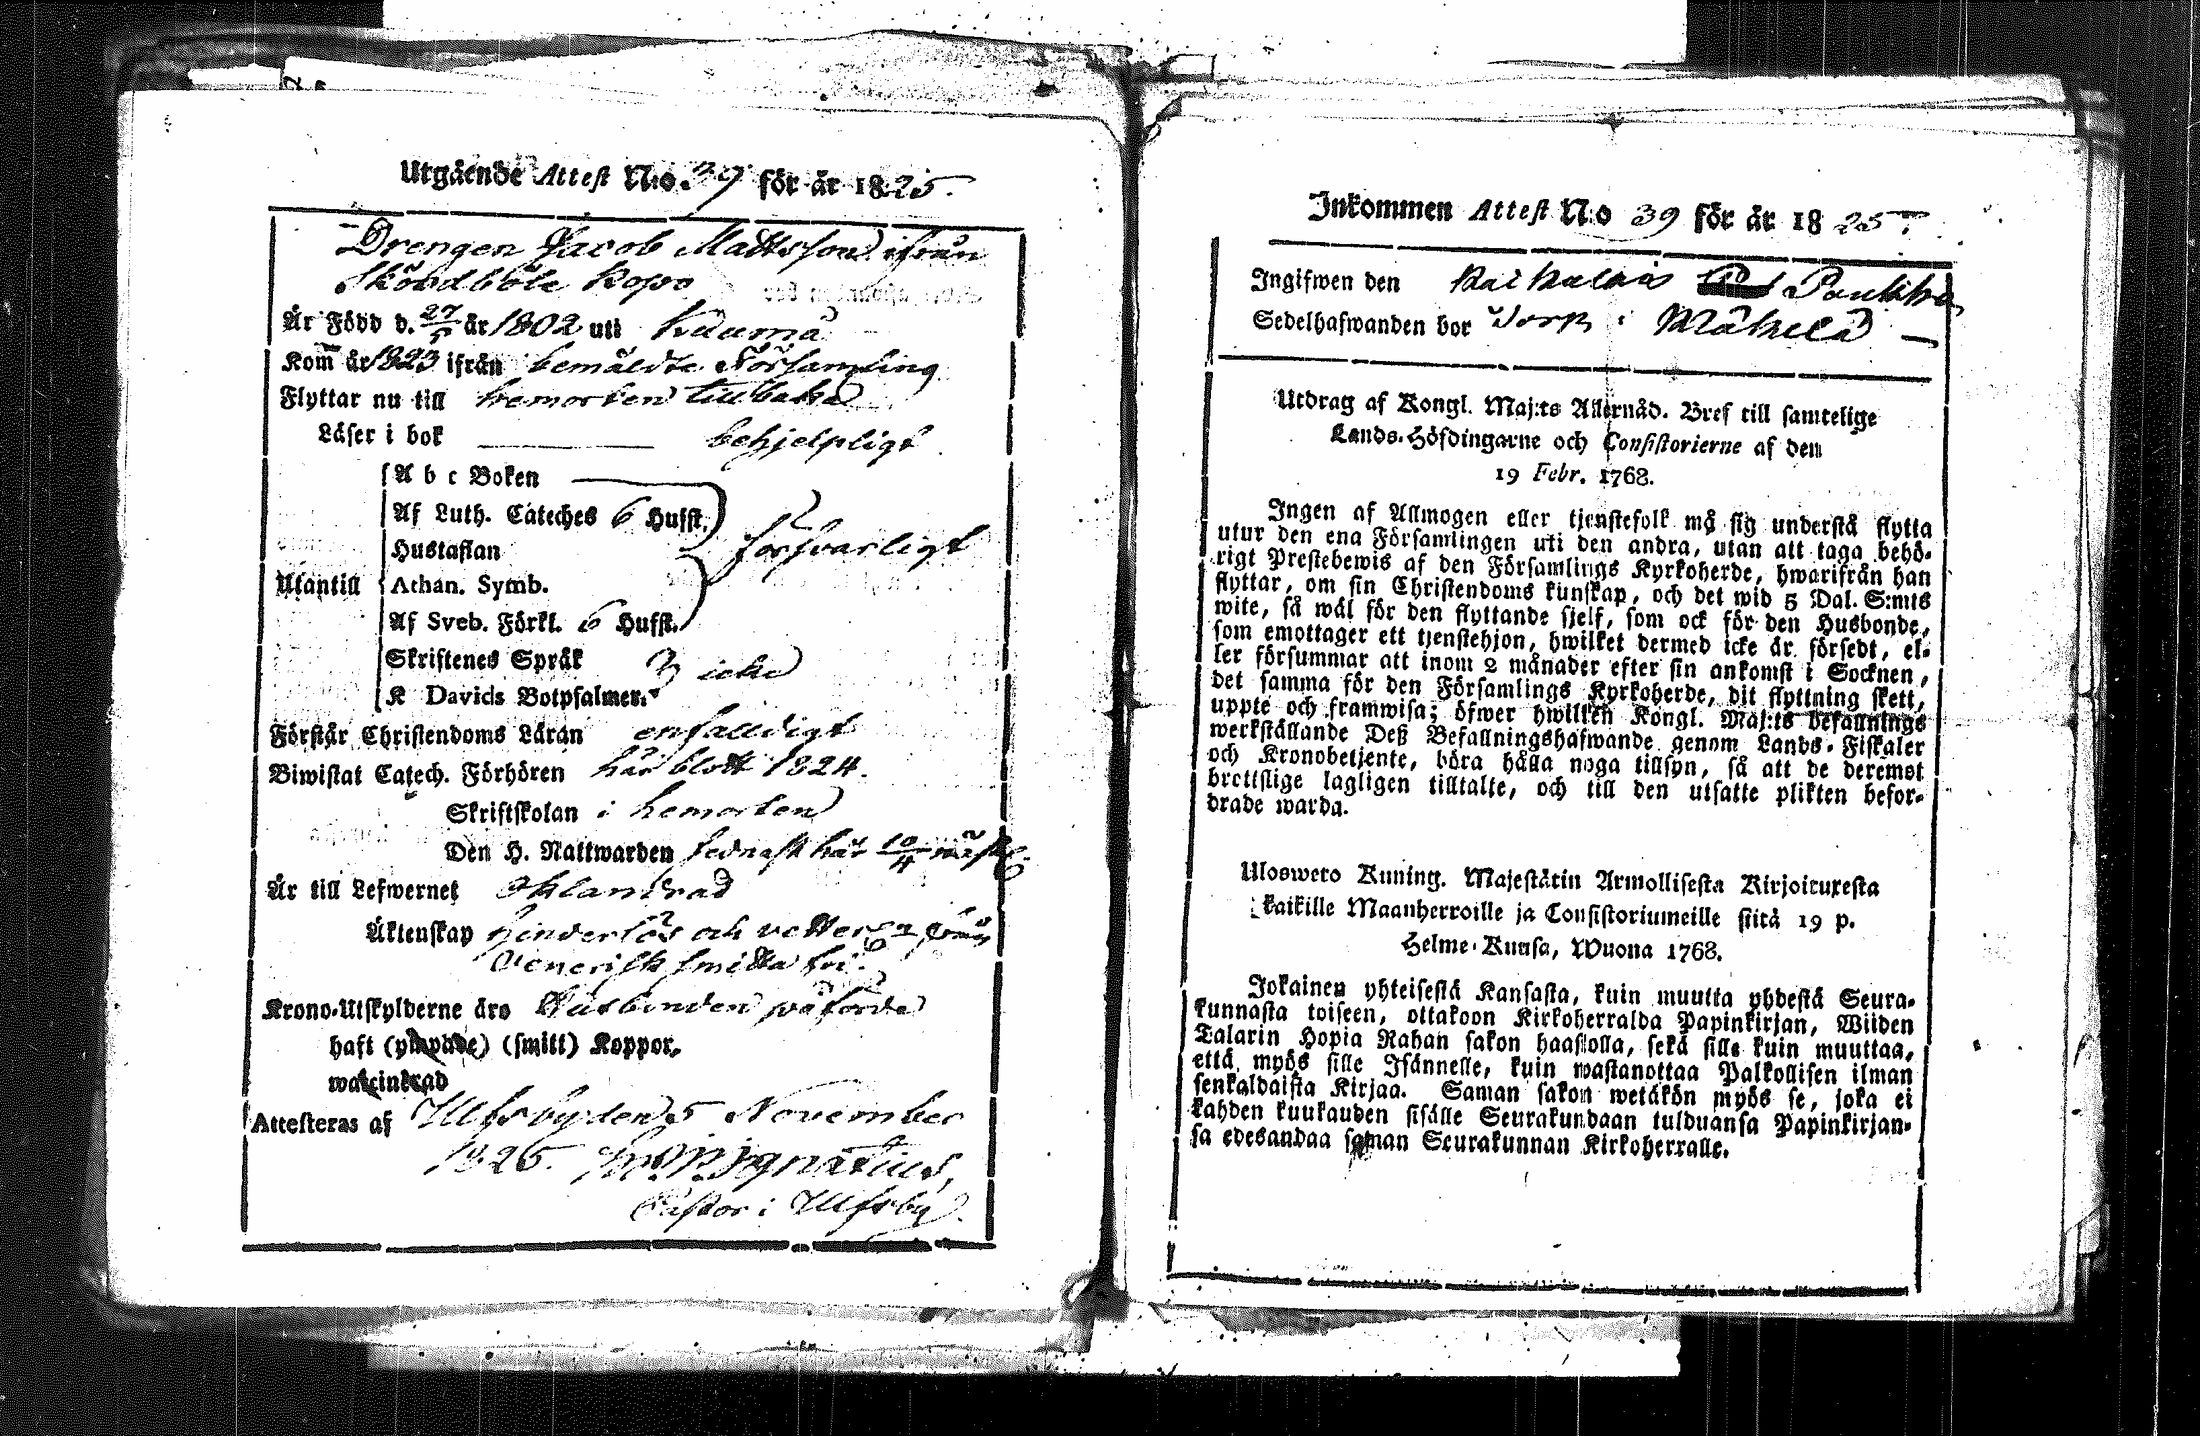 Utgående Attest N:o 39 för år 1825.
Drengen Jacob Mattsson ifrån
Sköädböle
Är Född d. 27/5 år 1802 uti Kiuma
Kom̅ år 1823 ifrån bemäldte Församling
Flyttar nu till hemorten tillbaka
Läser i bok behjelpligt
Utantill
A b c Boken
Af Luth. Cateches 6 Hufst.
Hustaflan
försvarligt
Athan. Symb.
Af Sveb. Förkl. 6 Hufst.
Skriftenes Språk
icke
K Davids Botpsalmer.
Förstår Christendoms Läran enfalldigt
Biwistat Catech. Förhören här blott 1824.
Skriftskolan i hemorten
Den H. Nattwarden sednast här 10/4
Är till Lefwernet Oklandrad
Äktenskap hinderlös och
Venerisk smitta fri.
Krono-Utskylderne äro Husbonden påförde
haft (ympade) (smitt) Koppor.
waccinerad
Attesteras af Ulfsby den 5 November
1825. Ignatius,
Pastor i Ulfsby.
Inkommen Attest N:o 39 för år 1825.
Ingifwen den
Sedelhafwanden bor Torp i Mäkelä
Utdrag af Kongl. Maj:ts Allernåd. Bref till samtelige
Lands-Höfdingarne och Consistorierne af den
19 Febr. 1768.
Ingen af Allmogen eller tjenstefolk må sig understå flytta
utur den ena Församlingen uti den andra, utan att taga behö-
rigt Prestebewis af den Församlings Kyrkoherde, hwarifrån han
flyttar, om sin Christendoms kunskap, och det wid 5 Dal. S:mts
wite, så wäl för den flyttande sjelf, som ock för den Husbonde,
som emottager ett tjenstehjon, hwilket dermed icke är försedt, el-
ler försummar att inom 2 månader efter sin ankomst i Socknen,
det samma för den Församlings Kyrkoherde, dit flyttning skett,
uppte och framwisa; öfwer hwilken Kongl. Maj:ts befallnings
werkställande Deß Befallningshafwande genom Lands-Fiskaler
och Kronobetjente, böra hålla noga tillsyn, så att de deremot
brettslige lagligen tilltalte, och till den utsatte plikten befor-
drade warda.
Uloswero Kuning. Majestätin Armollisesta Kirjoituxesta
kaikille Maanherroille ja Consistoriumeille siitä 19 p.
Helme-Kuusa, Wuona 1768.
Jokainen yhteisestä Kansasta, kuin muutta yhdestä Seura-
kunnasta toiseen, ottakoon Kirkoherralda Papinkirjan, Wiiden
Talarin Hopia Rahan sakon haastolla, sekä sille kuin muuttaa,
että myös sille Isännelle, kuin wastanottaa Palkollisen ilman
senkaldaista Kirjaa. Saman sakon wetäkön myös se, joka ei
kahden kuukauden sisälle Seurakundaan tulduansa Papinkirjan-
sa edesandaa saman Seurakunnan Kirkoherralle.